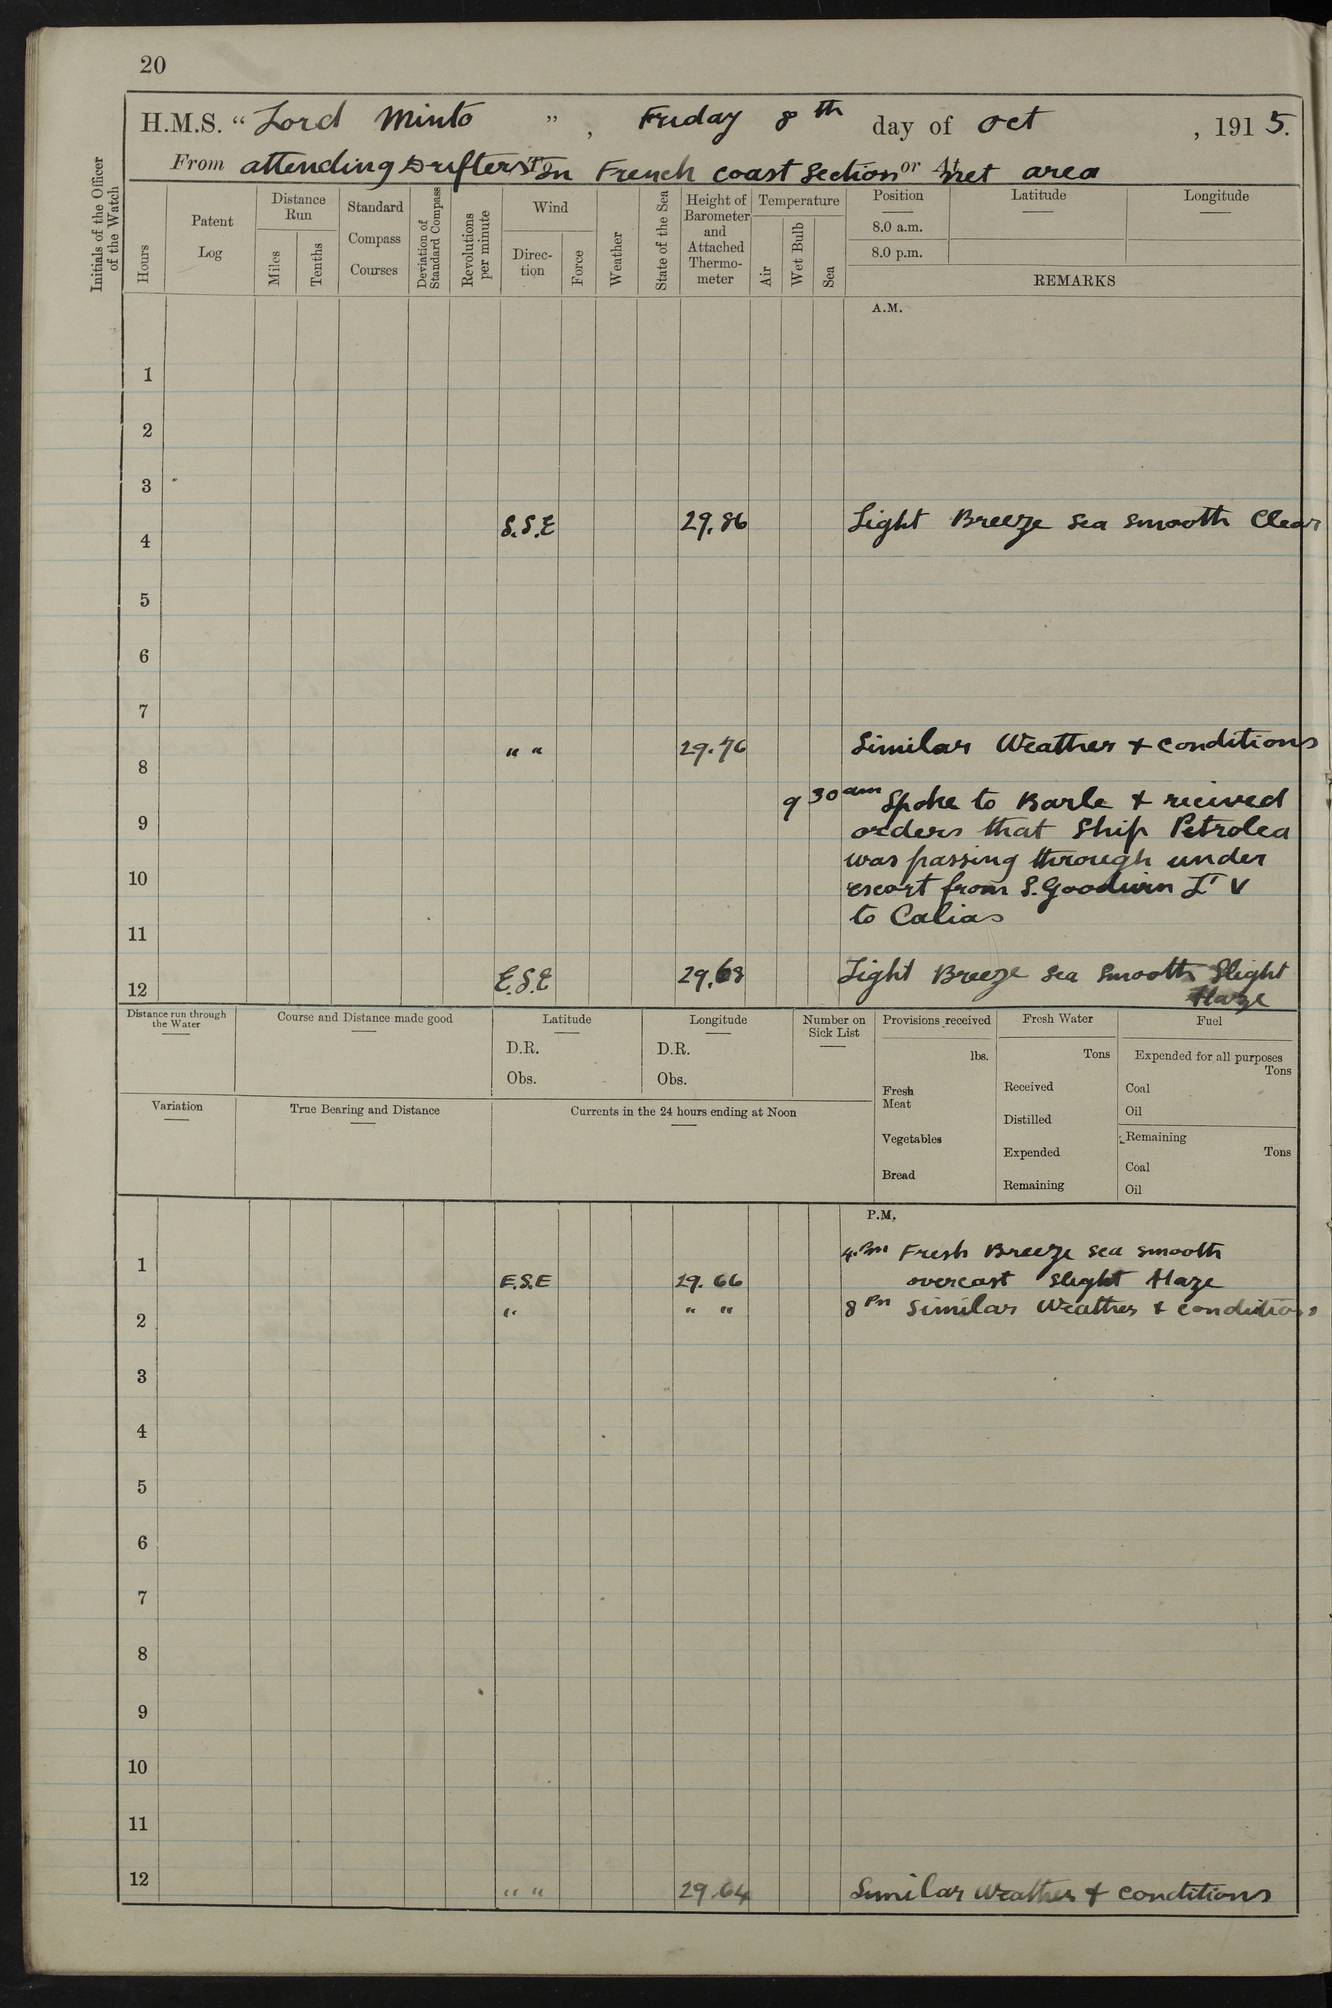 20
H.M.S. “ Lord Minto ” , Friday 8th day of Oct , 1915.
From attending Drifters To In French coast Section or At net area
Initials of the Officer of the Watch
Hours
Patent Log
Distance Run
Miles
Tenths
Standard Compass Courses
Deviation of Standard Compass
Revolutions per minute
Wind
Direc-tion
Force
Weather
State of the Sea
Height of Barometer and Attached Thermo-meter
Temperature
Air
Wet Bulb
Sea
Position
8.0 a.m.
8.0 p.m.
Latitude
Longitude
REMARKS
A.M.
1
2
3
4 S.S.E 29.86 Light Breeze sea smooth Clear
5
6
7
8 " " 29.76 Similar Weather + conditions
9 30 am Spoke to Barle + recived
9 orders that Ship Petrolea
was passing through under
10 escort from S. Goodwin Lt V
to Calias
11
12 E.S.E 29.68 Light Breeze sea smooth Slight
Haze
Distance run through the Water
Course and Distance made good
Latitude
D.R.
Obs.
Longitude
D.R.
Obs.
Number on Sick List
Provisions received
lbs.
Fresh Meat
Vegetables
Bread
Fresh Water
Tons
Received
Distilled
Expended
Remaining
Fuel
Expended for all purposes
Tons
Coal
Oil
Remaining
Tons
Coal
Oil
Variation
True Bearing and Distance
Currents in the 24 hours ending at Noon
P.M.
4.Pm Fresh Breeze sea smooth
1 E.S.E 29.66 overcast slight Haze
" " " 8 Pm Similar Weather + conditions
2
3
4
5
6
7
8
9
10
11
12 " " 29.64 Similar Weather + conditions